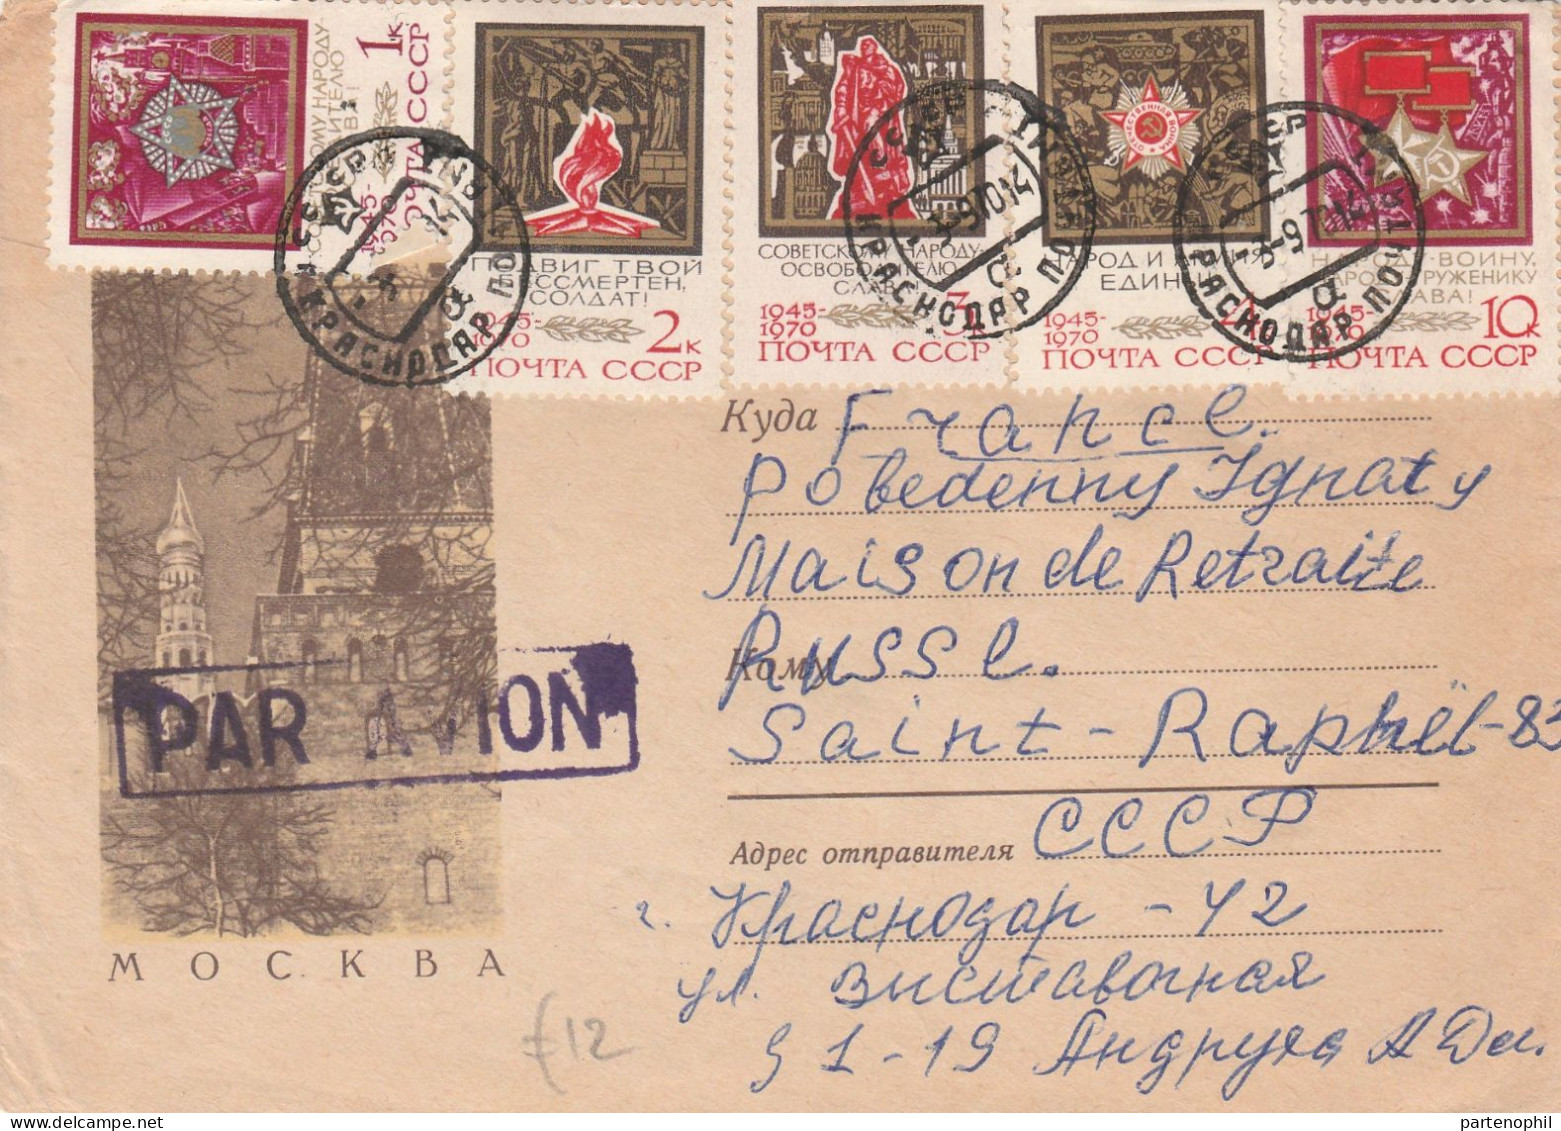 1к
ПОЧТА СССР
1945-
1970
ПОДВИГ ТВОЙ
БЕССМЕРТЕН,
СОЛДАТ!
1945-
1970
2к
ПОЧТА СССР
СОВЕТСКОМУ НАРОДУ-
ОСВОБОДИТЕЛЮ
СЛАВА!
1945-
1970
3к
ПОЧТА СССР
ОТЕЧЕСТВЕННАЯ ВОЙНА
НАРОД И АРМИЯ
ЕДИНЫ
1945-
1970
4к
ПОЧТА СССР
НАРОДУ-ВОИНУ,
НАРОДУ-ТРУЖЕНИКУ
СЛАВА!
1945-
1970
10к
ПОЧТА СССР
СССР
КРАСНОДАР ПОЧТ
СССР
КРАСНОДАР ПОЧТ
-3-9 70 14
СССР
КРАСНОДАР ПОЧТ
-3-9 70 14
Куда France.
Pobedenny Ignaty
Maison de Retraite
Кому Russe.
Saint-Raphël-83
PAR AVION
Адрес отправителя СССР
г. Краснодар-42
ул. Выставочная
91-19 Андруха А Ди.
МОСКВА
£12
partenophil